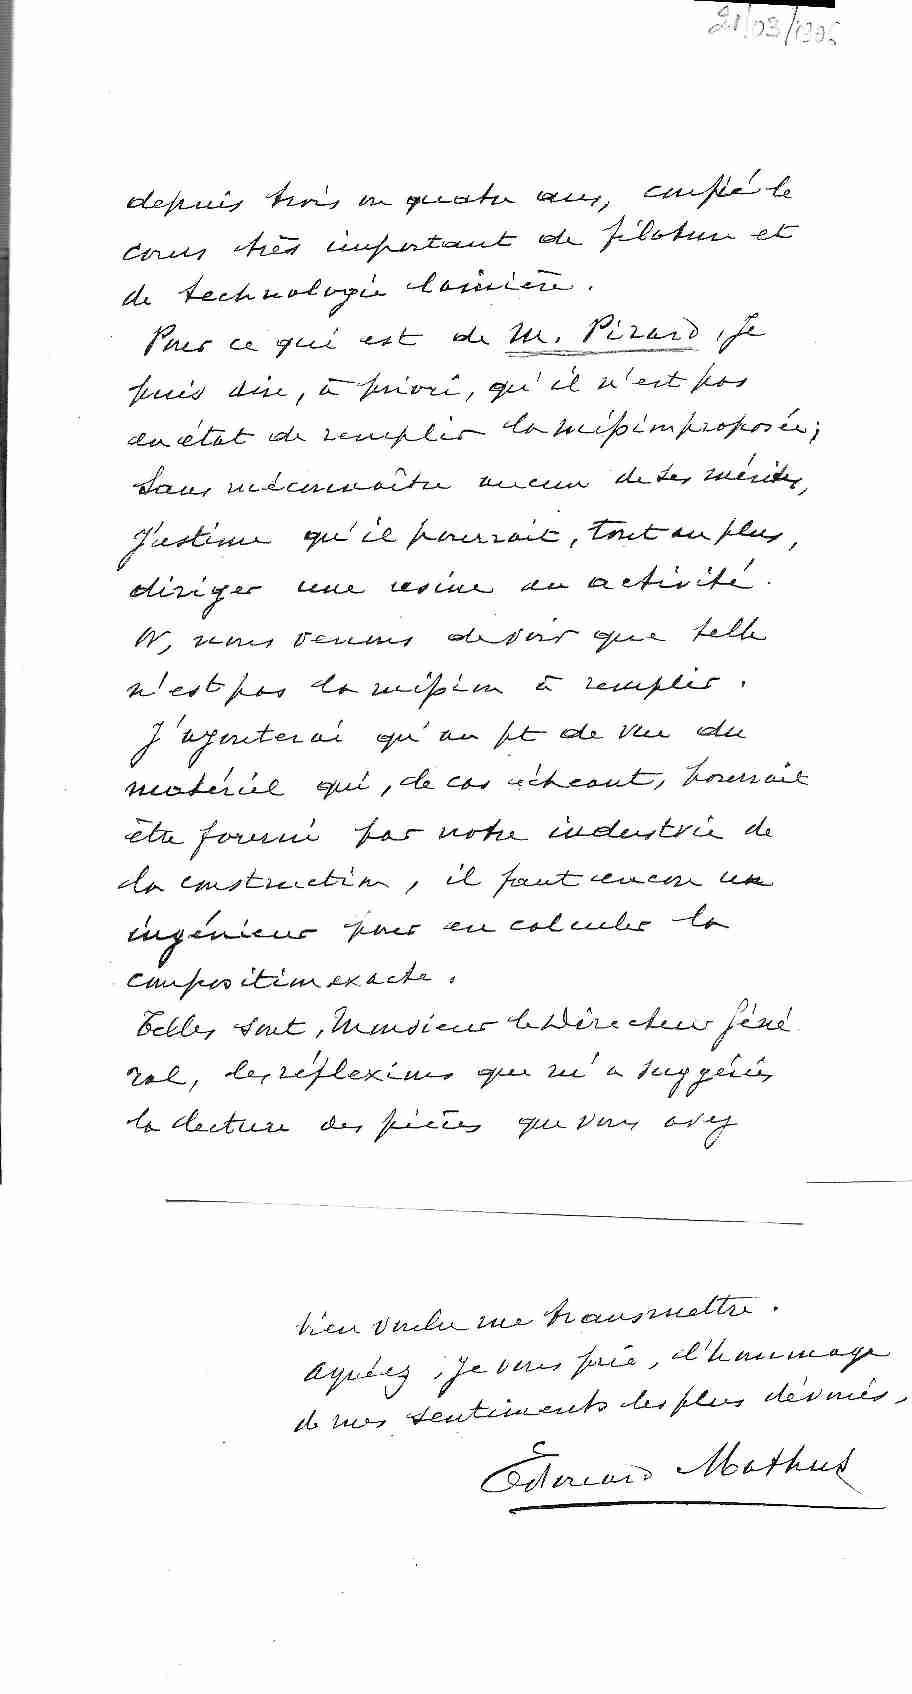 21/03/1906
depuis trois ou quatre ans, confié le
cours très important de filature et
de technologie lainière.
Pour ce qui est de M. Pirard, je
puis dire, à priori, qu'il n'est pas
en état de remplir la mission proposée;
Sans méconnaître aucun de ses mérites,
J'estime qu'il pourrait, tout au plus,
diriger une usine en activité.
Or, nous venons de voir que telle
n'est pas la mission à remplir.
J'ajouterai qu'au pt de vue du
matériel qui, le cas échéant, pourrait
être fourni par notre industrie de
la construction, il faut encore un
ingénieur pour en calculer la
composition exacte.
Telles sont, Monsieur le Directeur Géné
ral, les réflexions que m'a suggérées
la lecture des pièces que vous avez
bien voulu me transmettre.
Agréez, je vous prie, l'hommage
de mes sentiments les plus dévoués,
Édouard Mathus